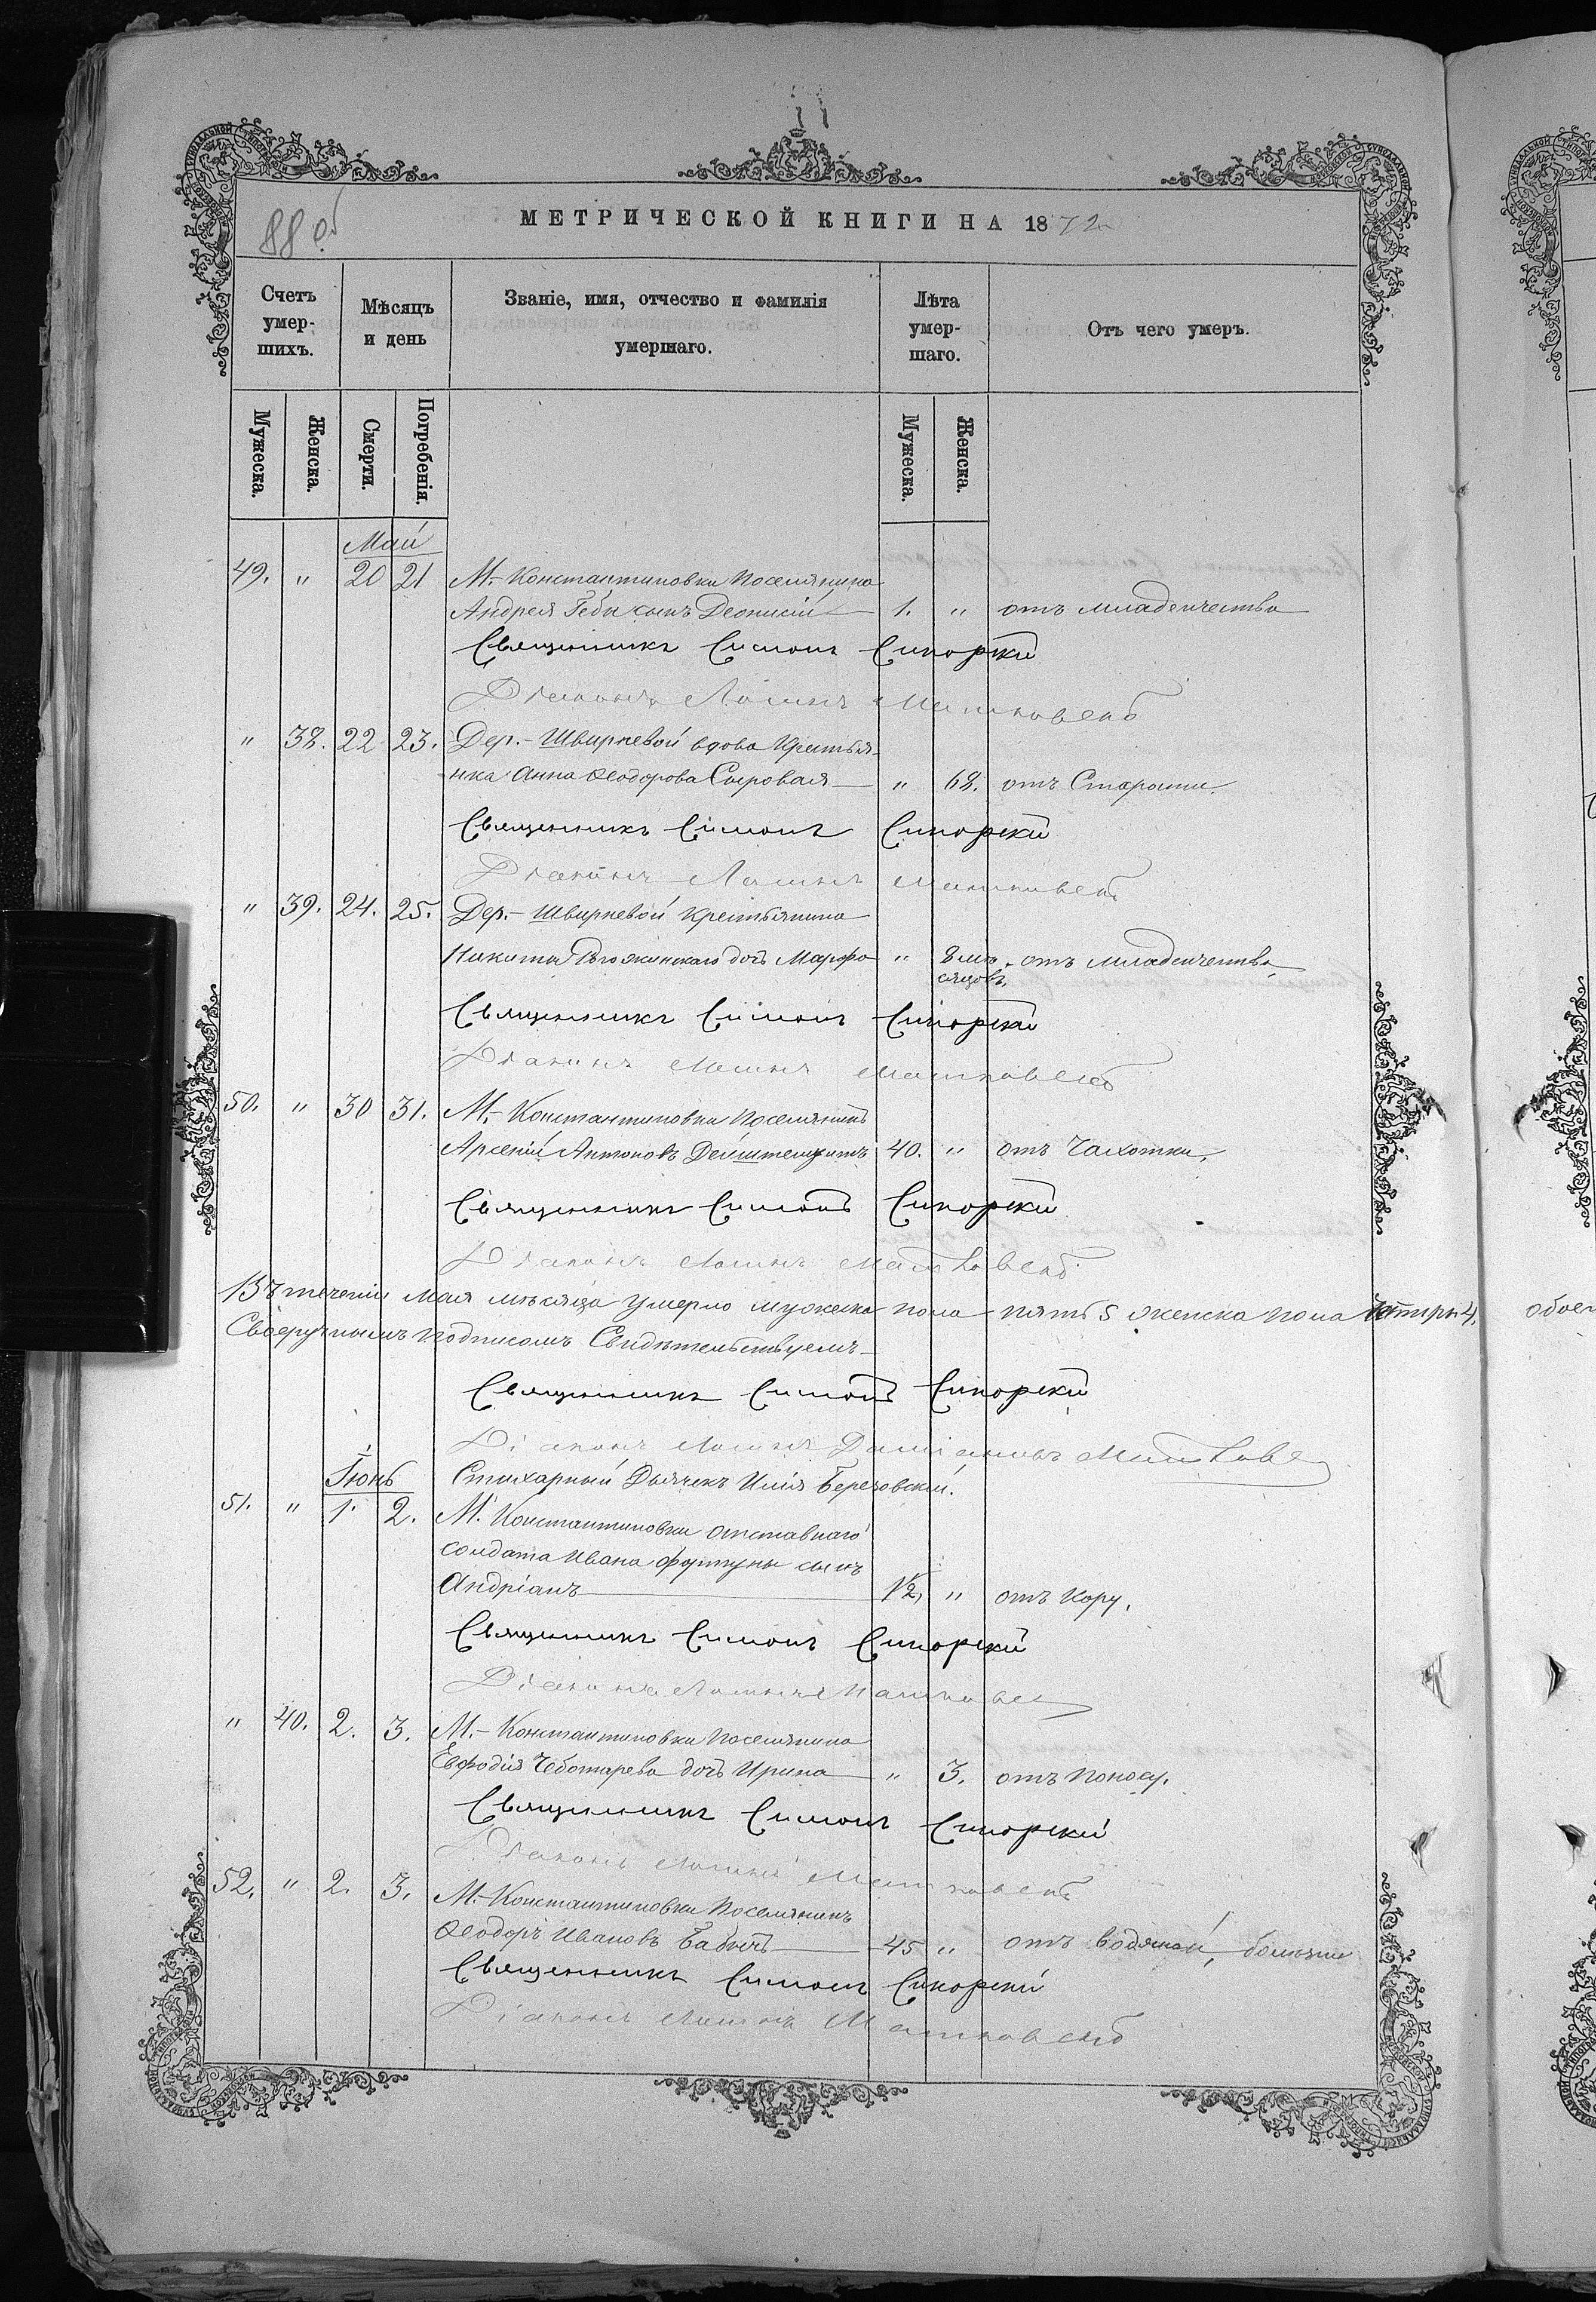 88 об
МЕТРИЧЕСКОЙ КНИГИ НА 1872
Счетъ умершихъ.
Мѣсяцъ и день
Званіе, имя, отчество и фамилія умершаго.
Лѣта умершаго.
Отъ чего умеръ.
Мужеска. Женска. Смерти. Погребенія. Мужеска. Женска.
Май
49. " 20 21 М.- Константиновки Поселянина
Андрея Гебы сынъ Деонисій 1. " отъ младенчества
Священникъ Симонъ Сикорскій
Діаконъ Матковскій
" 38. 22 23. Дер.- Швырневой вдова Крестья-
нка Анна Ѳеодорова Сыровая " 68. отъ Старости.
Священникъ Симонъ Сикорскій
Діаконъ Матковскій
" 39. 24. 25. Дер.- Швырневой крестьянина
Никиты дочь Марфа " 8 мѣ-сяцовъ. отъ младенчества
Священникъ Симонъ Сикорскій
Діаконъ Матковскій
50. " 30 31. М.- Константиновки Поселянинъ
Арсеній Антоновъ 40. " отъ Чахотки.
Священникъ Симонъ Сикорскій
Діаконъ Матковскій
Въ теченіи Мая мѣсяца умерло мужеска пола пять 5 женска пола четыри 4. обоег
Своеручнымъ подписомъ Свидѣтельствуемъ
Священникъ Симонъ Сикорскій
Діаконъ Даміановъ Матковс
Стихарный Дьячекъ Илія Березовскій.
Іюнь
51. " 1. 2. М. Константиновки отставнаго
солдата Ивана Фортуны сынъ
Андріанъ 1/2, " отъ Кору.
Священникъ Симонъ Сикорскій
Діаконъ Матковс
" 40. 2. 3. М.- Константиновки Поселянина
Евфодія Чеботарева дочь Ирина " 3. отъ Поносу.
Священникъ Симонъ Сикорскій
Діаконъ Матковскій
52. " 2. 3. М.- Константиновки Поселянинъ
Ѳеодоръ Ивановъ Бабичъ 45 " отъ водяной, болѣзни
Священникъ Симонъ Сикорскій
Діаконъ Матковскій